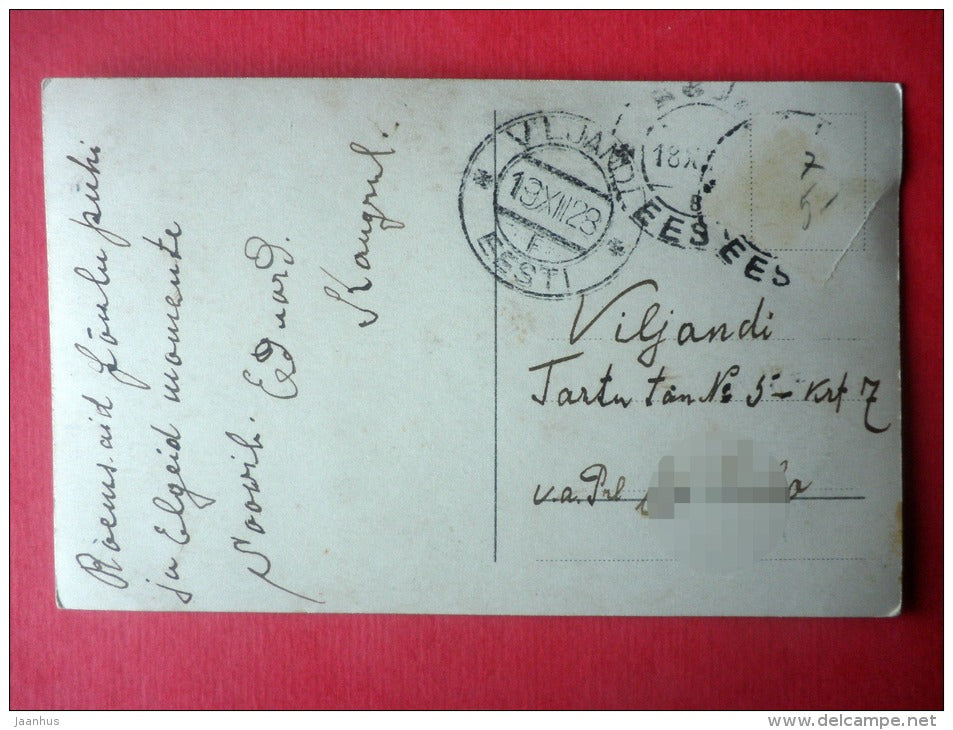 Rõemsaid Jõulu pühi
ja Elgeid momente
Soovib. Eduard.
VILJANDI
19XII28
EESTI
18X
EES
EES
7
5
Viljandi
Tartu tän № 5 - krt 7
v.a. Prl
jaanhus
www.delcampe.net